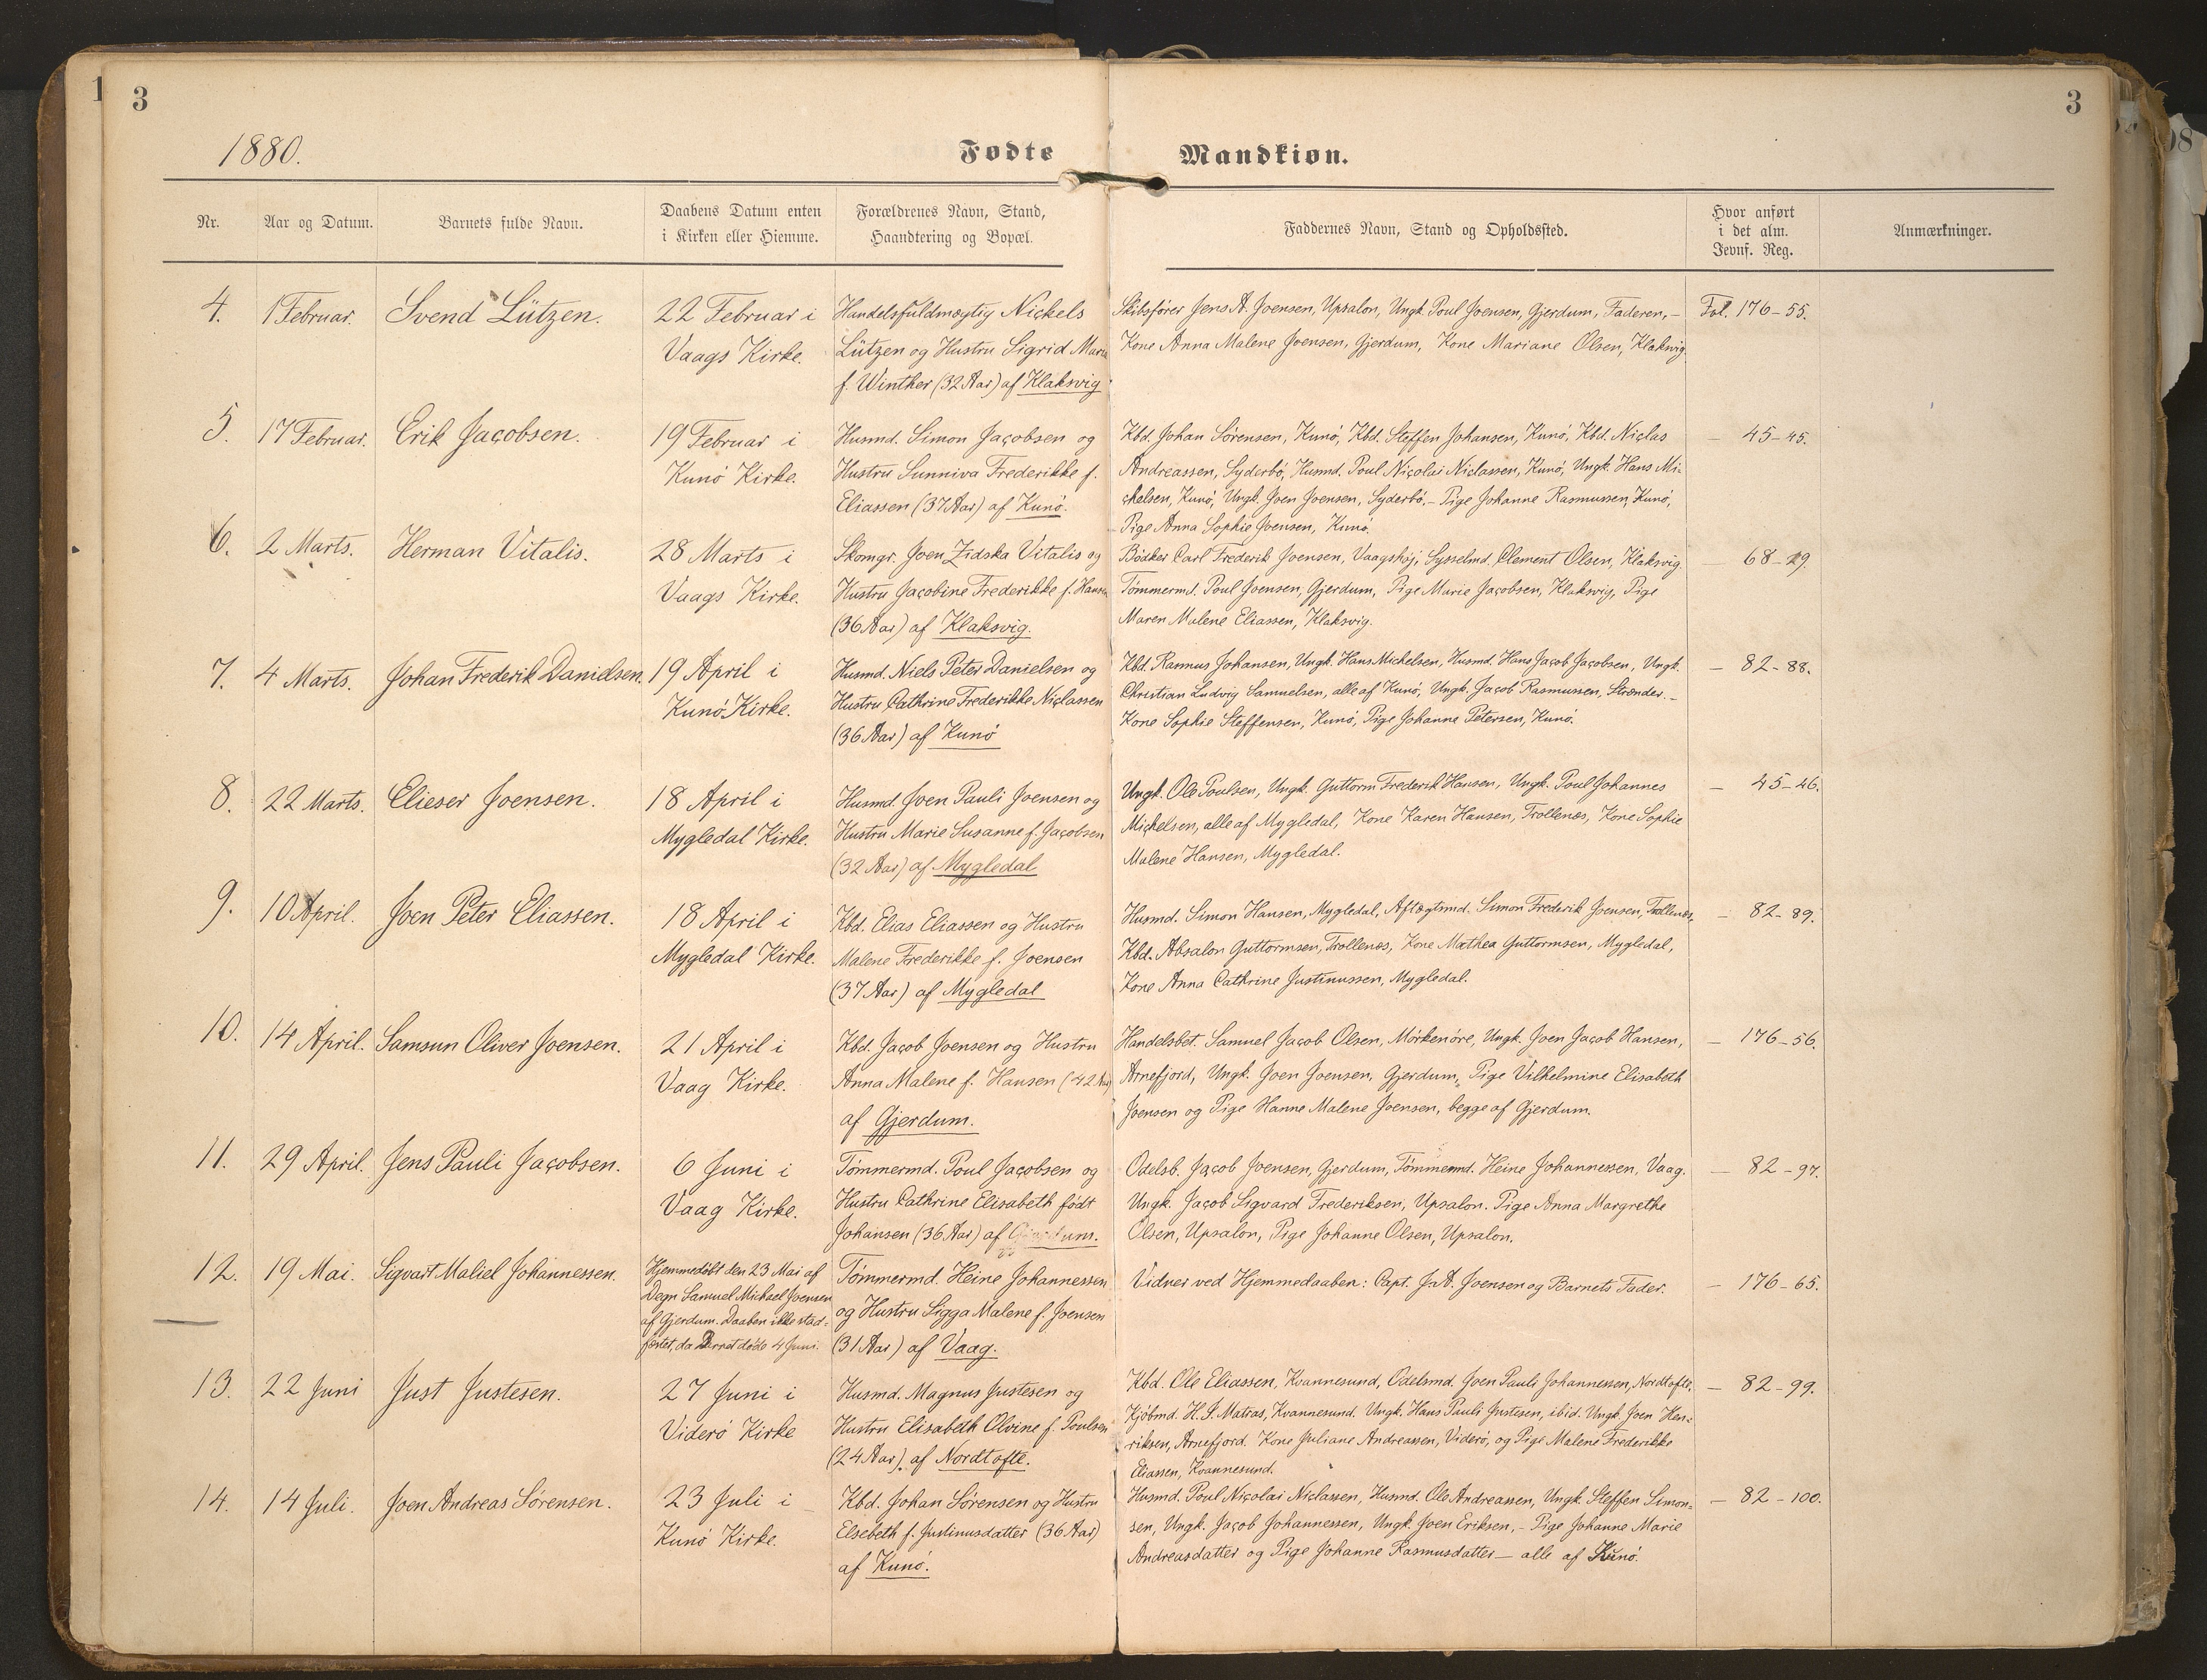 1
3
3
08
1880.
Fødte Mandkiøn.
Nr.
Aar og Datum.
Barnets fulde Navn.
Daabens Datum enten
i Kirken eller Hiemme.
Forældrenes Navn, Stand,
Haandtering og Bopæl.
Faddernes Navn, Stand og Opholdssted.
Hvor anført
i det alm.
Jevnf. Reg.
Anmærkninger.
4.
1 Februar.
Svend Lützen.
22 Februar i
Vaags Kirke.
Handelsfuldmægtig Nickels
Lützen og Hustru Sigrid Maria
f. Winther (32 Aar) af Klaksvig
Skibsfører Jens A. Joensen, Upsalon, Ungk. Poul Joensen, Gjerdum, Faderen, –
Kone Anna Malene Joensen, Gjerdum, Kone Mariane Olsen, Klaksvig.
Fol. 176–55.
5.
17 Februar.
Erik Jacobsen.
19 Februar i
Kunö Kirke.
Husmd. Simon Jacobsen og
Hustru Sunniva Frederikke f.
Eliassen (37 Aar) af Kunö.
Kbd. Johan Sörensen, Kunö, Kbd. Steffen Johansen, Kunö, Kbd. Niclas
Andreassen, Syderbö, Husmd. Poul Nicolai Niclassen, Kunö, Ungk. Hans Mi-
chelsen, Kunö, Ungk. Joen Joensen, Syderbö. – Pige Johanne Rasmussen, Kunö,
Pige Anna Sophie Joensen, Kunö.
– 45–45.
6.
2 Marts.
Herman Vitalis.
28 Marts i
Vaags Kirke.
Skomgr. Joen Zidska Vitalis og
Hustru Jacobine Frederikke f. Hansen
(36 Aar) af Klaksvig.
Bödker Carl Frederik Joensen, Vaagshöj, Sysselmd. Clement Olsen, Klaksvig.
Tömmermd. Poul Joensen, Gjerdum, Pige Marie Jacobsen, Klaksvig, Pige
Maren Malene Eliassen, Klaksvig.
– 68–29.
7.
4 Marts.
Johan Frederik Danielsen.
19 April i
Kunö Kirke.
Husmd. Niels Peter Danielsen og
Hustru Cathrine Frederikke Niclassen
(36 Aar) af Kunö
Kbd. Rasmus Johansen, Ungk. Hans Michelsen, Husmd. Hans Jacob Jacobsen, Ungk.
Christian Ludvig Samuelsen, alle af Kunö, Ungk. Jacob Rasmussen, Strander. –
Kone Sophie Steffensen, Kunö, Pige Johanne Petersen, Kunö.
– 82–88.
8.
22 Marts.
Elieser Joensen.
18 April i
Mygledal Kirke.
Husmd. Joen Pauli Joensen og
Hustru Marie Susanne f. Jacobsen
(32 Aar) af Mygledal
Ungk. Ole Poulsen, Ungk. Guttorm Frederik Hansen, Ungk. Poul Johannes
Michelsen, alle af Mygledal, Kone Karen Hansen, Trollenæs, Kone Sophie
Malene Hansen, Mygledal.
– 45–46.
9.
10 April.
Joen Peter Eliassen.
18 April i
Mygledal Kirke.
Kbd. Elias Eliassen og Hustru
Malene Frederikke f. Joensen
(37 Aar) af Mygledal
Husmd. Simon Hansen, Mygledal, Aftægtsmd. Simon Frederik Joensen, Trollenæs,
Kbd. Absalon Guttormsen, Trollenæs, Kone Mathea Guttormsen, Mygledal,
Kone Anna Cathrine Justinussen, Mygledal.
– 82–89.
10.
14 April.
Samsun Oliver Joensen.
21 April i
Vaag Kirke.
Kbd. Jacob Joensen og Hustru
Anna Malene f. Hansen (42 Aar)
af Gjerdum.
Handelsbet. Samuel Jacob Olsen, Mörkenöre, Ungk. Joen Jacob Hansen,
Arnefjord, Ungk. Joen Joensen, Gjerdum, Pige Vilhelmine Elisabeth
Joensen og Pige Hanne Malene Joensen, begge af Gjerdum.
– 176–56.
11.
29 April.
Jens Pauli Jacobsen.
6 Juni i
Vaag Kirke.
Tömmermd. Poul Jacobsen og
Hustru Cathrine Elisabeth födt
Johansen (36 Aar) af Gjerdum.
Odelsb. Jacob Joensen, Gjerdum, Tömmermd. Heine Johannessen, Vaag.
Ungk. Jacob Sigvard Frederiksen, Upsalon. Pige Anna Margrethe
Olsen, Upsalon, Pige Johanne Olsen, Upsalon.
– 82–97.
12.
19 Mai.
Sigvart Maliel Johannessen.
Hjemmedöbt den 23 Mai af
Degn Samuel Michael Joensen
af Gjerdum. Daaben ikke stad-
fæstet, da Barnet döde 4 Juni.
Tömmermd. Heine Johannessen
og Hustru Sigga Malene f. Joensen
(31 Aar) af Vaag.
Vidner ved Hjemmedaaben: Capt. J. A. Joensen og Barnets Fader.
– 176–65.
13.
22 Juni
Just Justesen.
27 Juni i
Viderö Kirke
Husmd. Magnus Justesen og
Hustru Elisabeth Olvine f. Poulsen
(24 Aar). af Nordtofte.
Kbd. Ole Eliassen, Kvannesund, Odelsmd. Joen Pauli Johannessen, Nordtofte,
Kjöbmd. H. J. Matras, Kvannesund. Ungk. Hans Pauli Justesen, ibid. Ungk. Joen Hen-
riksen, Arnefjord. Kone Juliane Andreassen, Viderö, og Pige Malene Frederikke
Eliassen, Kvannesund.
– 82–99.
14.
14 Juli.
Joen Andreas Sörensen.
23 Juli i
Kunö Kirke.
Kbd. Johan Sörensen og Hustru
Elsebeth f. Justinusdatter (36 Aar)
af Kunö.
Husmd. Poul Nicolai Niclassen, Husmd. Ole Andreassen, Ungk. Steffen Simon-
sen, Ungk. Jacob Johannessen, Ungk. Joen Eriksen, – Pige Johanne Marie
Andreasdatter og Pige Johanne Rasmusdatter – alle af Kunö.
– 82–100.